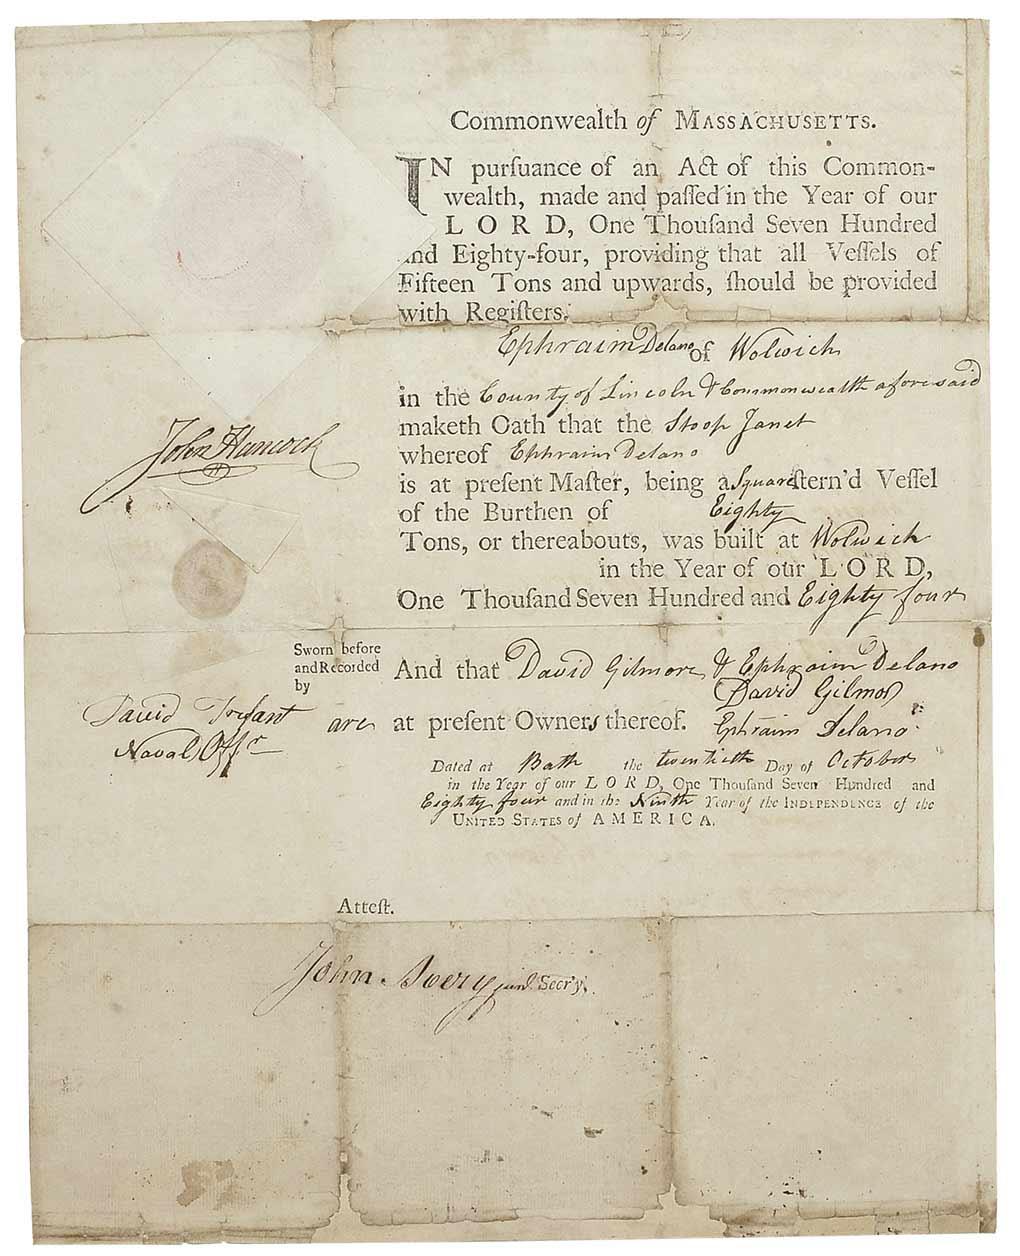 Commonwealth of MASSACHUSETTS.
IN purſuance of an Act of this Common-
wealth, made and paſſed in the Year of our
LORD, One Thouſand Seven Hundred
and Eighty-four, providing that all Veſſels of
Fifteen Tons and upwards, ſhould be provided
with Regiſters.
Ephraim Delano of Wolwich
in the County of Lincoln & Commonwealth aforesaid
maketh Oath that the Sloop Janet
whereof Ephraim Delano
is at preſent Maſter, being a Square ſtern'd Veſſel
of the Burthen of Eighty
Tons, or thereabouts, was built at Wolwich
in the Year of our LORD,
One Thouſand Seven Hundred and Eighty four
And that David Gilmore & Ephraim Delano
David Gilmor
are at preſent Owners thereof. Ephraim Delano
Dated at Bath the twentieth Day of October
in the Year of our LORD, One Thouſand Seven Hundred and
Eighty four and in the Ninth Year of the INDEPENDENCE of the
UNITED STATES of AMERICA.
John Hancock
Sworn before
and Recorded
by
David Trufant
Naval Offr
Atteſt.
John Avery junr Secr'y.